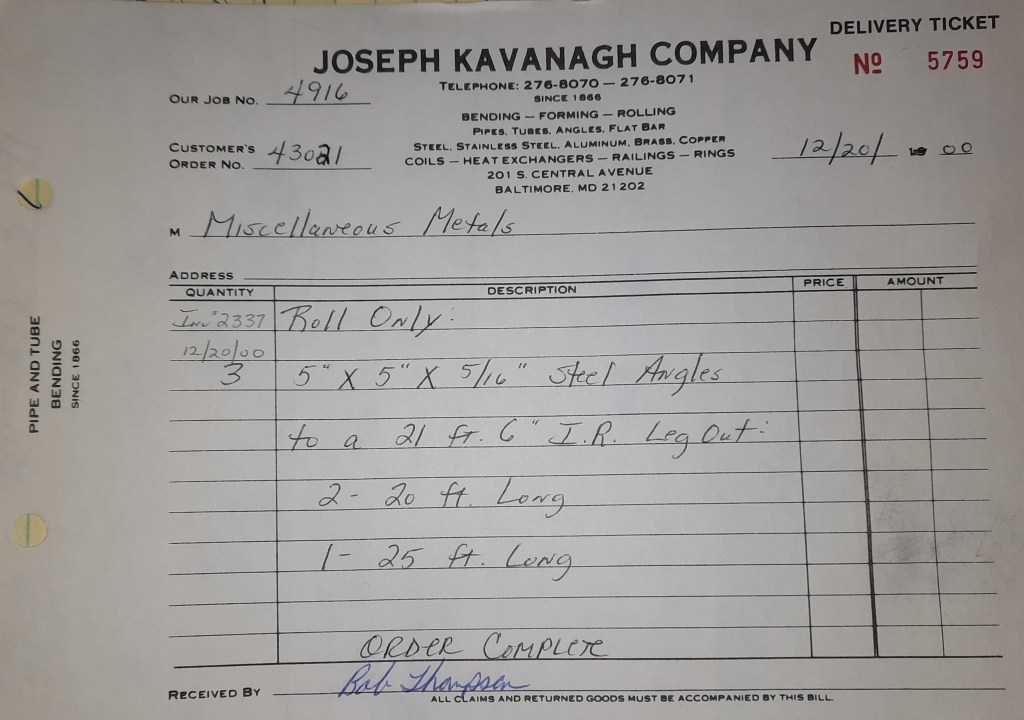 DELIVERY TICKET
JOSEPH KAVANAGH COMPANY
Nº 5759
TELEPHONE: 276-8070 — 276-8071
SINCE 1866
OUR JOB NO. 4916
BENDING — FORMING — ROLLING
PIPES, TUBES, ANGLES, FLAT BAR
STEEL, STAINLESS STEEL, ALUMINUM, BRASS, COPPER
COILS — HEAT EXCHANGERS — RAILINGS — RINGS
201 S. CENTRAL AVENUE
BALTIMORE, MD 21202
CUSTOMER'S
ORDER NO. 43021
12/20/ 00
M Miscellaneous Metals
ADDRESS
QUANTITY DESCRIPTION PRICE AMOUNT
Inv # 2337 Roll Only:
12/20/00
3 5" X 5" X 5/16" Steel Angles
to a 21 ft. 6" I.R. Leg Out:
2 - 20 ft. Long
1 - 25 ft. Long
ORDER COMPLETE
RECEIVED BY Bob Thompson
ALL CLAIMS AND RETURNED GOODS MUST BE ACCOMPANIED BY THIS BILL.
PIPE AND TUBE
BENDING
SINCE 1866